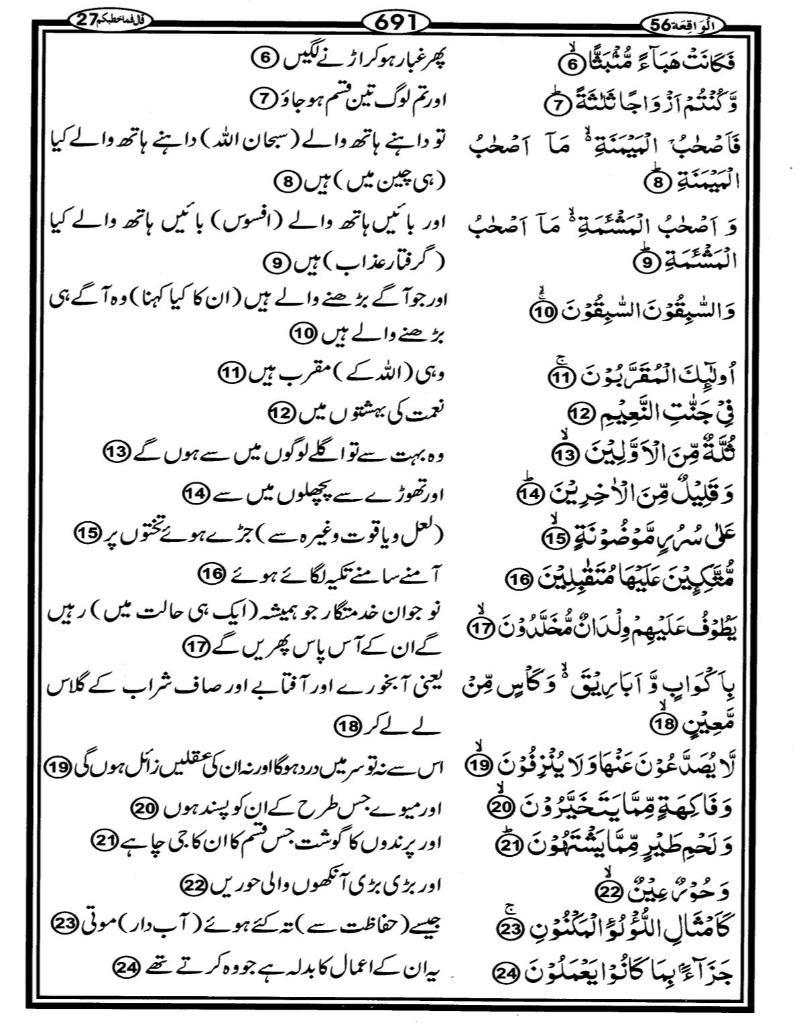 الواقعة 56
691
قال فما خطبكم 27
فَكَانَتْ هَبَآءً مُّنْۢبَثًّا ۙ 6
پھر غبار ہو کر اڑنے لگیں 6
وَّكُنْتُمْ اَزْوَاجًا ثَلٰثَةً ؕ 7
اور تم لوگ تین قسم ہو جاؤ 7
فَاَصْحٰبُ الْمَيْمَنَةِ ۙ مَاۤ اَصْحٰبُ
الْمَيْمَنَةِ ؕ 8
تو داہنے ہاتھ والے (سبحان اللہ) داہنے ہاتھ والے کیا
(ہی چین میں) ہیں 8
وَ اَصْحٰبُ الْمَشْـَٔمَةِ ۙ مَاۤ اَصْحٰبُ
الْمَشْـَٔمَةِ ؕ 9
اور بائیں ہاتھ والے (افسوس) بائیں ہاتھ والے کیا
(گرفتار عذاب) ہیں 9
وَالسّٰبِقُوْنَ السّٰبِقُوْنَ ۚۙ 10
اور جو آگے بڑھنے والے ہیں (ان کا کیا کہنا) وہ آگے ہی
بڑھنے والے ہیں 10
اُولٰٓئِكَ الْمُقَرَّبُوْنَ ۚ 11
وہی (اللہ کے) مقرب ہیں 11
فِيْ جَنّٰتِ النَّعِيْمِ 12
نعمت کی بہشتوں میں 12
ثُلَّةٌ مِّنَ الْاَوَّلِيْنَ ۙ 13
وہ بہت سے تو اگلے لوگوں میں سے ہوں گے 13
وَقَلِيْلٌ مِّنَ الْاٰخِرِيْنَ ؕ 14
اور تھوڑے سے پچھلوں میں سے 14
عَلٰى سُرُرٍ مَّوْضُوْنَةٍ ۙ 15
(لعل و یاقوت وغیرہ سے) جڑے ہوئے تختوں پر 15
مُّتَّكِـِٕيْنَ عَلَيْهَا مُتَقٰبِلِيْنَ 16
آمنے سامنے تکیہ لگائے ہوئے 16
يَطُوْفُ عَلَيْهِمْ وِلْدَانٌ مُّخَلَّدُوْنَ ۙ 17
نوجوان خدمتگار جو ہمیشہ (ایک ہی حالت میں) رہیں
گے ان کے آس پاس پھریں گے 17
بِاَكْوَابٍ وَّ اَبَارِيْقَ ۙ وَكَاْسٍ مِّنْ
مَّعِيْنٍ ۙ 18
یعنی آبخورے اور آفتابے اور صاف شراب کے گلاس
لے لے کر 18
لَّا يُصَدَّعُوْنَ عَنْهَا وَلَا يُنْزِفُوْنَ ۙ 19
اس سے نہ تو سر میں درد ہوگا اور نہ ان کی عقلیں زائل ہوں گی 19
وَفَاكِهَةٍ مِّمَّا يَتَخَيَّرُوْنَ ۙ 20
اور میوے جس طرح کے ان کو پسند ہوں 20
وَلَحْمِ طَيْرٍ مِّمَّا يَشْتَهُوْنَ ؕ 21
اور پرندوں کا گوشت جس قسم کا ان کا جی چاہے 21
وَحُوْرٌ عِيْنٌ ۙ 22
اور بڑی بڑی آنکھوں والی حوریں 22
كَاَمْثَالِ اللُّؤْلُؤِ الْمَكْنُوْنِ ۚ 23
جیسے (حفاظت سے) تہ کئے ہوئے (آب دار) موتی 23
جَزَآءًۢ بِمَا كَانُوْا يَعْمَلُوْنَ 24
یہ ان کے اعمال کا بدلہ ہے جو وہ کرتے تھے 24